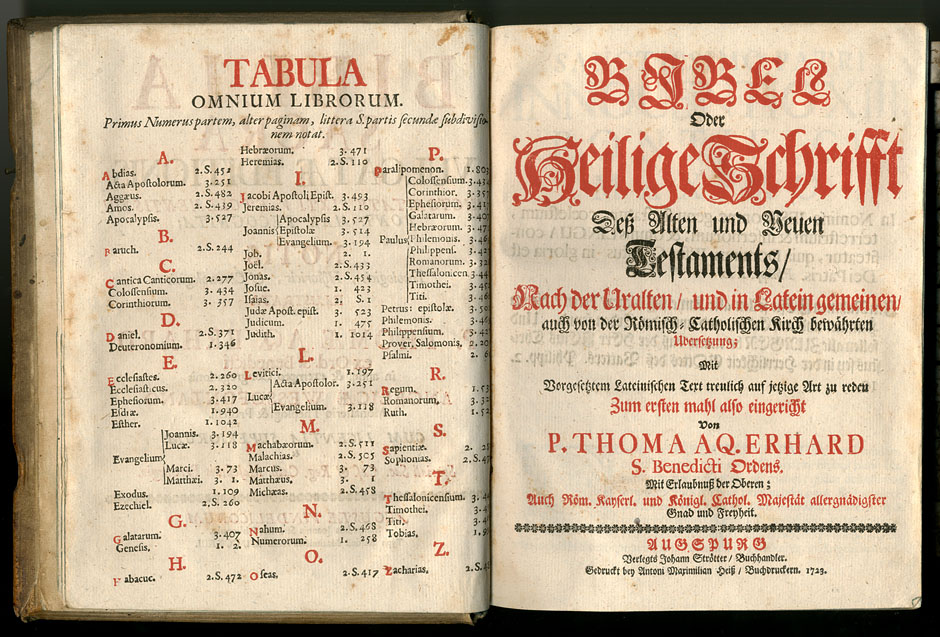 TABULA
OMNIUM LIBRORUM.
Primus Numerus partem, alter paginam, littera S. partis secundæ subdivisio-
nem notat.
A.
Abdias. 2.S.452
Acta Apostolorum. 3.251
Aggæus. 2.S.482
Amos. 2.S.439
Apocalypsis. 3.527
B.
Baruch. 2.S.244
C.
Cantica Canticorum. 2.277
Colossensium. 3.434
Corinthiorum. 3.357
D.
Daniel. 2.S.371
Deuteronomium. 1.346
E.
Ecclesiastes. 2.260
Ecclesiasticus. 2.320
Ephesiorum. 3.417
Esdræ. 1.940
Esther. 1.1042
Evangelium
Joannis. 3.194
Lucæ. 3.118
Marci. 3.73
Matthæi. 3.1
Exodus. 1.109
Ezechiel. 2.S.260
G.
Galatarum. 3.407
Genesis. 1.2.
H.
Habacuc. 2.S.472
Hebræorum. 3.471
Heremias. 2.S.110
I.
Jacobi Apostoli Epist. 3.493
Jeremias. 2.S.110
Joannis
Apocalypsis 3.527
Epistolæ 3.514
Evangelium. 3.194
Job. 2.1.
Joël. 2.S.433
Jonas. 2.S.454
Josue. 1.423
Isaias. 2.S.1
Judæ Apost. epist. 3.523
Judicum. 1.475
Judith. 1.1014
L.
Levitici. 1.197
Lucæ
Acta Apostolor. 3.251
Evangelium. 3.118
M.
Machabæorum. 2.S.511
Malachias. 2.S.505
Marcus. 3.73.
Matthæus. 3.1
Michæas. 2.S.458
N.
Nahum. 2.S.468
Numerorum. 1.258
O.
Oseas. 2.S.417
P.
Paralipomenon. 1.803
Paulus
Colossensium. 3.434
Corinthior. 3.357
Ephesiorum. 3.417
Galatarum. 3.407
Hebræorum. 3.47
Philemonis. 3.46
Philippens. 3.42
Romanorum. 3.32
Thessalonicen. 3.44
Timothei. 3.45
Titi. 3.46
Petrus: epistolæ. 3.50
Philemonis. 3.46
Philippensium. 3.42
Prover. Salomonis. 2.20
Psalmi. 2.6
R.
Regum. 1.53
Romanorum. 3.32
Ruth. 1.52
S.
Sapientiæ. 2.28
Sophonias. 2.S.47
T.
Thessalonicensium. 3.4
Timothei. 3.4
Titi. 3.4
Tobias. 1.9
Z.
Zacharias. 2.S.4
BIBEL
Oder
Heilige Schrifft
Deß Alten und Neuen
Testaments/
Nach der Uralten/ und in Latein gemeinen/
auch von der Römisch-Catholischen Kirch bewährten
Ubersetzung;
Mit
Vorgesetztem Lateinischen Text treulich auf jetzige Art zu reden
Zum ersten mahl also eingericht
Von
P. THOMA AQ. ERHARD
S. Benedicti Ordens.
Mit Erlaubnuß der Oberen;
Auch Röm. Kayserl. und Königl. Cathol. Majestät allergnädigster
Gnad und Freyheit.
AUGSPURG
Verlegts Johann Strötter/ Buchhandler.
Gedruckt bey Antoni Maximilian Heiß/ Buchdruckern. 1723.